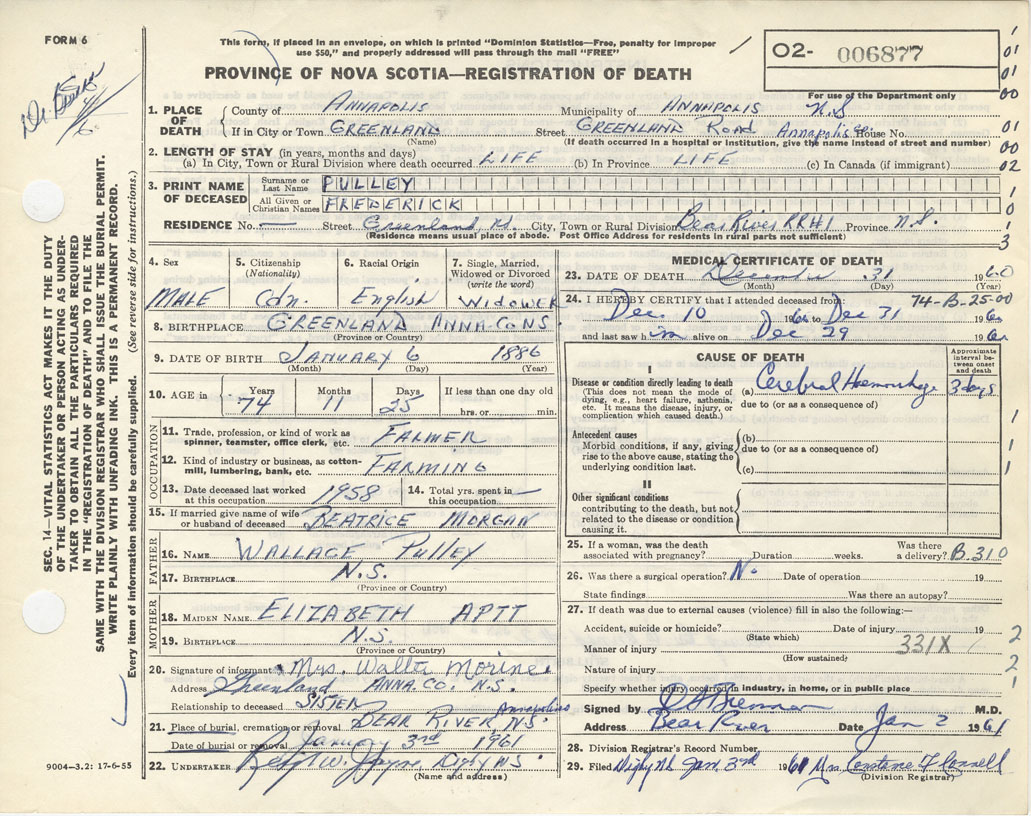 FORM 6
This form, if placed in an envelope, on which is printed "Dominion Statistics—Free, penalty for improper
use $50," and properly addressed will pass through the mail "FREE"
PROVINCE OF NOVA SCOTIA—REGISTRATION OF DEATH
02- 006877
For use of the Department only
1. PLACE OF DEATH
County of ANNAPOLIS Municipality of ANNAPOLIS N.S
If in City or Town GREENLAND Street GREENLAND ROAD Annapolis Co. House No.
(Name) (If death occurred in a hospital or institution, give the name instead of street and number)
2. LENGTH OF STAY (in years, months and days)
(a) In City, Town or Rural Division where death occurred LIFE (b) In Province LIFE (c) In Canada (if immigrant)
3. PRINT NAME OF DECEASED
Surname or Last Name PULLEY
All Given or Christian Names FREDERICK
RESIDENCE No. — Street Greenland Rd. City, Town or Rural Division Bear River RR#1 Province N.S.
(Residence means usual place of abode. Post Office Address for residents in rural parts not sufficient)
01
01
00
01
00
02
1
0
1
3
4. Sex
MALE
5. Citizenship
(Nationality)
Cdn.
6. Racial Origin
English
7. Single, Married,
Widowed or Divorced
(write the word)
WIDOWER
8. BIRTHPLACE GREENLAND ANNA. CO N.S.
(Province or Country)
9. DATE OF BIRTH JANUARY 6 1886
(Month) (Day) (Year)
10. AGE in Years 74 Months 11 Days 25 If less than one day old
hrs. or min.
OCCUPATION
11. Trade, profession, or kind of work as
spinner, teamster, office clerk, etc. FARMER
12. Kind of industry or business, as cotton-
mill, lumbering, bank, etc. FARMING
13. Date deceased last worked
at this occupation 1958
14. Total yrs. spent in
this occupation —
15. If married give name of wife
or husband of deceased BEATRICE MORGAN
FATHER
16. NAME WALLACE PULLEY
17. BIRTHPLACE N.S.
(Province or Country)
MOTHER
18. MAIDEN NAME ELIZABETH APTT
19. BIRTHPLACE N.S.
(Province or Country)
20. Signature of informant Mrs. Walter Morine
Address Greenland ANNA. CO. N.S.
Relationship to deceased SISTER
21. Place of burial, cremation or removal BEAR RIVER N.S. Annapolis
Date of burial or removal January 3rd 1961
22. UNDERTAKER W. Jayne, Digby N.S.
(Name and address)
MEDICAL CERTIFICATE OF DEATH
23. DATE OF DEATH December 31 1960
(Month) (Day) (Yr)
24. I HEREBY CERTIFY that I attended deceased from: 74-B-25-00
Dec 10 1960 to Dec 31 1960
and last saw him alive on Dec 29 1960
CAUSE OF DEATH
Approximate
interval between
onset
and death
I
Disease or condition directly leading to death
(This does not mean the mode of
dying, e.g., heart failure, asthenia,
etc. It means the disease, injury, or
complication which caused death.)
(a) Cerebral Haemorrhage 3 days
due to (or as a consequence of)
Antecedent causes
Morbid conditions, if any, giving
rise to the above cause, stating the
underlying condition last.
(b)
due to (or as a consequence of)
(c)
II
Other significant conditions
contributing to the death, but not
related to the disease or condition
causing it.
1
1
1
25. If a woman, was the death
associated with pregnancy? Duration weeks. Was there
a delivery? B.310
26. Was there a surgical operation? No Date of operation 19
State findings Was there an autopsy?
27. If death was due to external causes (violence) fill in also the following:—
Accident, suicide or homicide? Date of injury 19
(State which)
Manner of injury 331X
(How sustained)
Nature of injury
Specify whether injury occurred in industry, in home, or in public place
2
2
1
Signed by M.D.
Address Bear River Date Jan 2 1961
28. Division Registrar's Record Number
29. Filed Digby N.S. Jan. 3rd 1961 Mrs
(Division Registrar)
SEC. 14—VITAL STATISTICS ACT MAKES IT THE DUTY
OF THE UNDERTAKER OR PERSON ACTING AS UNDER-
TAKER TO OBTAIN ALL THE PARTICULARS REQUIRED
IN THE "REGISTRATION OF DEATH" AND TO FILE THE
SAME WITH THE DIVISION REGISTRAR WHO SHALL ISSUE THE BURIAL PERMIT.
WRITE PLAINLY WITH UNFADING INK. THIS IS A PERMANENT RECORD.
Every item of information should be carefully supplied. (See reverse side for instructions.)
9004-3.2: 17-6-55